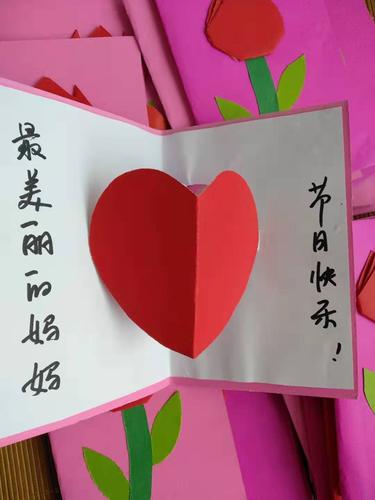 最美丽的妈妈
节日快乐！